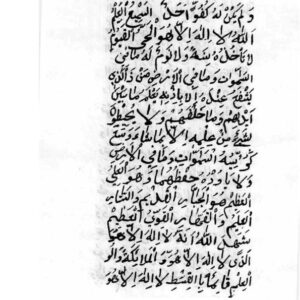 ولم يكن له كفوا احد السميع العليم
الله لا اله الا هو الحي القيوم
لا تأخذه سنة ولا نوم له ما في
السموات وما في الارض من ذا الذي
يشفع عنده الا باذنه يعلم ما بين
ايديهم وما خلفهم ولا يحيطون
بشيء من علمه الا بما شا وسع
كرسيه السموات وما في الارض
ولا يؤده حفظهما وهو العلي
العظيم هو الجبار القديم والستار
العليم والقهار القوي العظيم
شهد الله انه لا اله الا هو
الذي لا اله الا هو والملائكة واولوا
العلم قائما بالقسط لا اله الا هو